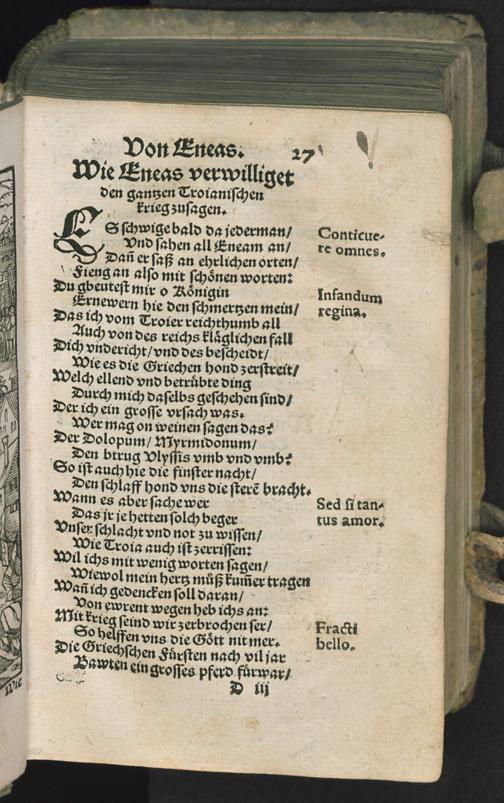 Von Eneas. 27
Wie Eneas verwilliget
den gantzen Troianischen
krieg zusagen.
ES schwige bald da jederman/
Vnd sahen all Eneam an/
Dañ er saß an ehrlichen orten/
Fieng an also mit schönen worten:
Du gbeutest mir o Königin
Ernewern hie den schmertzen mein/
Das ich vom Troier reichthumb all
Auch von des reichs kläglichen fall
Dich vndericht/ vnd des bescheidt/
Wie es die Griechen hond zerstreit/
Welch ellend vnd betrübte ding
Durch mich daselbs geschehen sind/
Der ich ein grosse vrsach was.
Wer mag on weinen sagen das?
Der Dolopum/ Myrmidonum/
Den btrug Vlyssis vmb vnd vmb?
So ist auch hie die finster nacht/
Den schlaff hond vns die sterē bracht.
Wann es aber sache wer
Das jr je hetten solch beger
Vnser schlacht vnd not zu wissen/
Wie Troia auch ist zerrissen:
Wil ichs mit wenig worten sagen/
Wiewol mein hertz müß kum̃er tragen
Wañ ich gedencken soll daran/
Von ewrent wegen heb ichs an:
Mit krieg seind wir zerbrochen ser/
So helffen vns die Gött nit mer.
Die Griechschen Fürsten nach vil jar
Bawten ein grosses pferd fürwar/
D iij
Conticue-
re omnes.
Infandum
regina.
Sed si tan-
tus amor.
Fracti
bello.
Wie